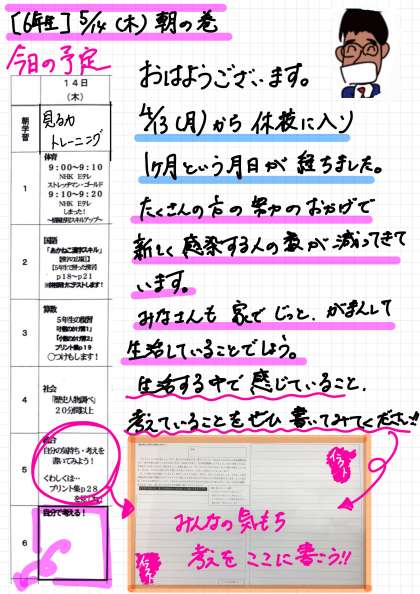 [6年生] 5/14 (木) 朝の巻
今日の予定
14日
(木)
朝学習
見る力
トレーニング
1
体育
9:00～9:10
NHK Eテレ
ストレッチマン・ゴールド
9:10～9:20
NHK Eテレ
しまった!
～情報活用スキルアップ～
2
国語
「あかねこ漢字スキル」
【5年生で習った漢字】
p18～p21
3
算数
5年生の復習
プリント集p19
○つけもします!
4
社会
「歴史人物調べ」
20分間以上
5
総合
自分の気持ち・考えを
書いてみよう!
くわしくは…
プリント集p28
6
自分で考える!
おはようございます。
4/13(月)から休校に入り
1ヶ月という月日が経ちました。
たくさんの方の努力のおかげで
新しく感染する人の数が減ってきて
います。
みなさんも家でじっと、がまんして
生活していることでしょう。
生活する中で感じていること、
考えていることをぜひ書いてみてください!!
イラスト
みんなの気もち
考えをここに書こう!!
イラスト